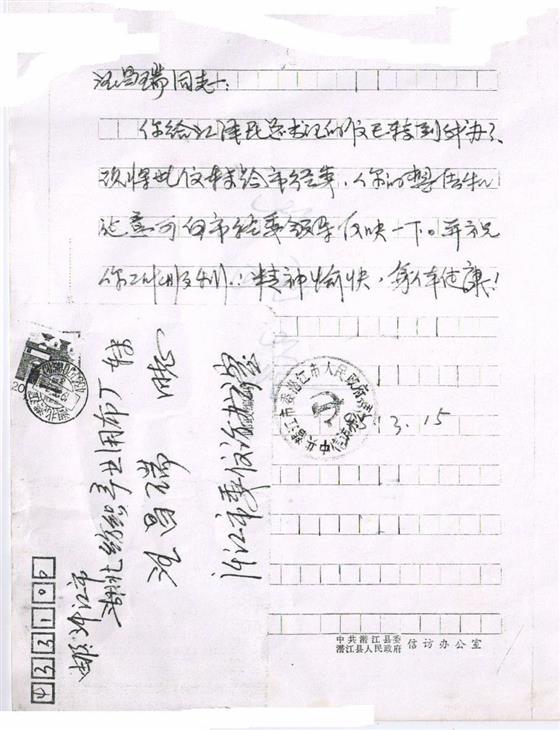 汪昌瑞同志:
你给江泽民总书记的信已转到我办,
现将此信转给市经委,你的想法和
意可向市经委领导反映一下。并祝
你工作顺利!精神愉快,身体健康!
3.15
中共潜江县委
潜江县人民政府
信访办公室
433102
湖北纺织产业用布厂 转
汪昌瑞 收
潜江市委信访办公室